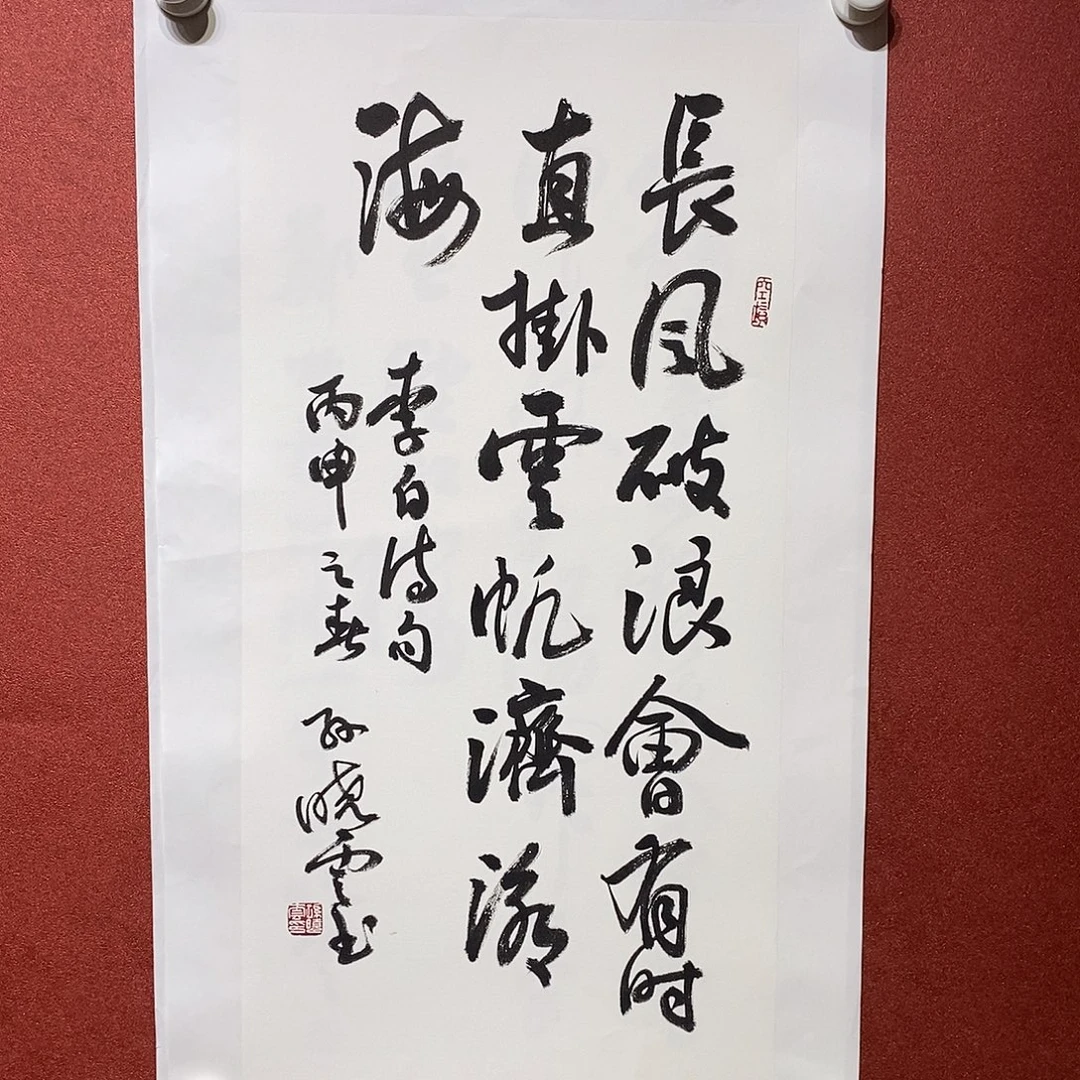 長風破浪會有时
直掛雲帆濟滄
海
李白诗句
丙申之春 孫晓雲书